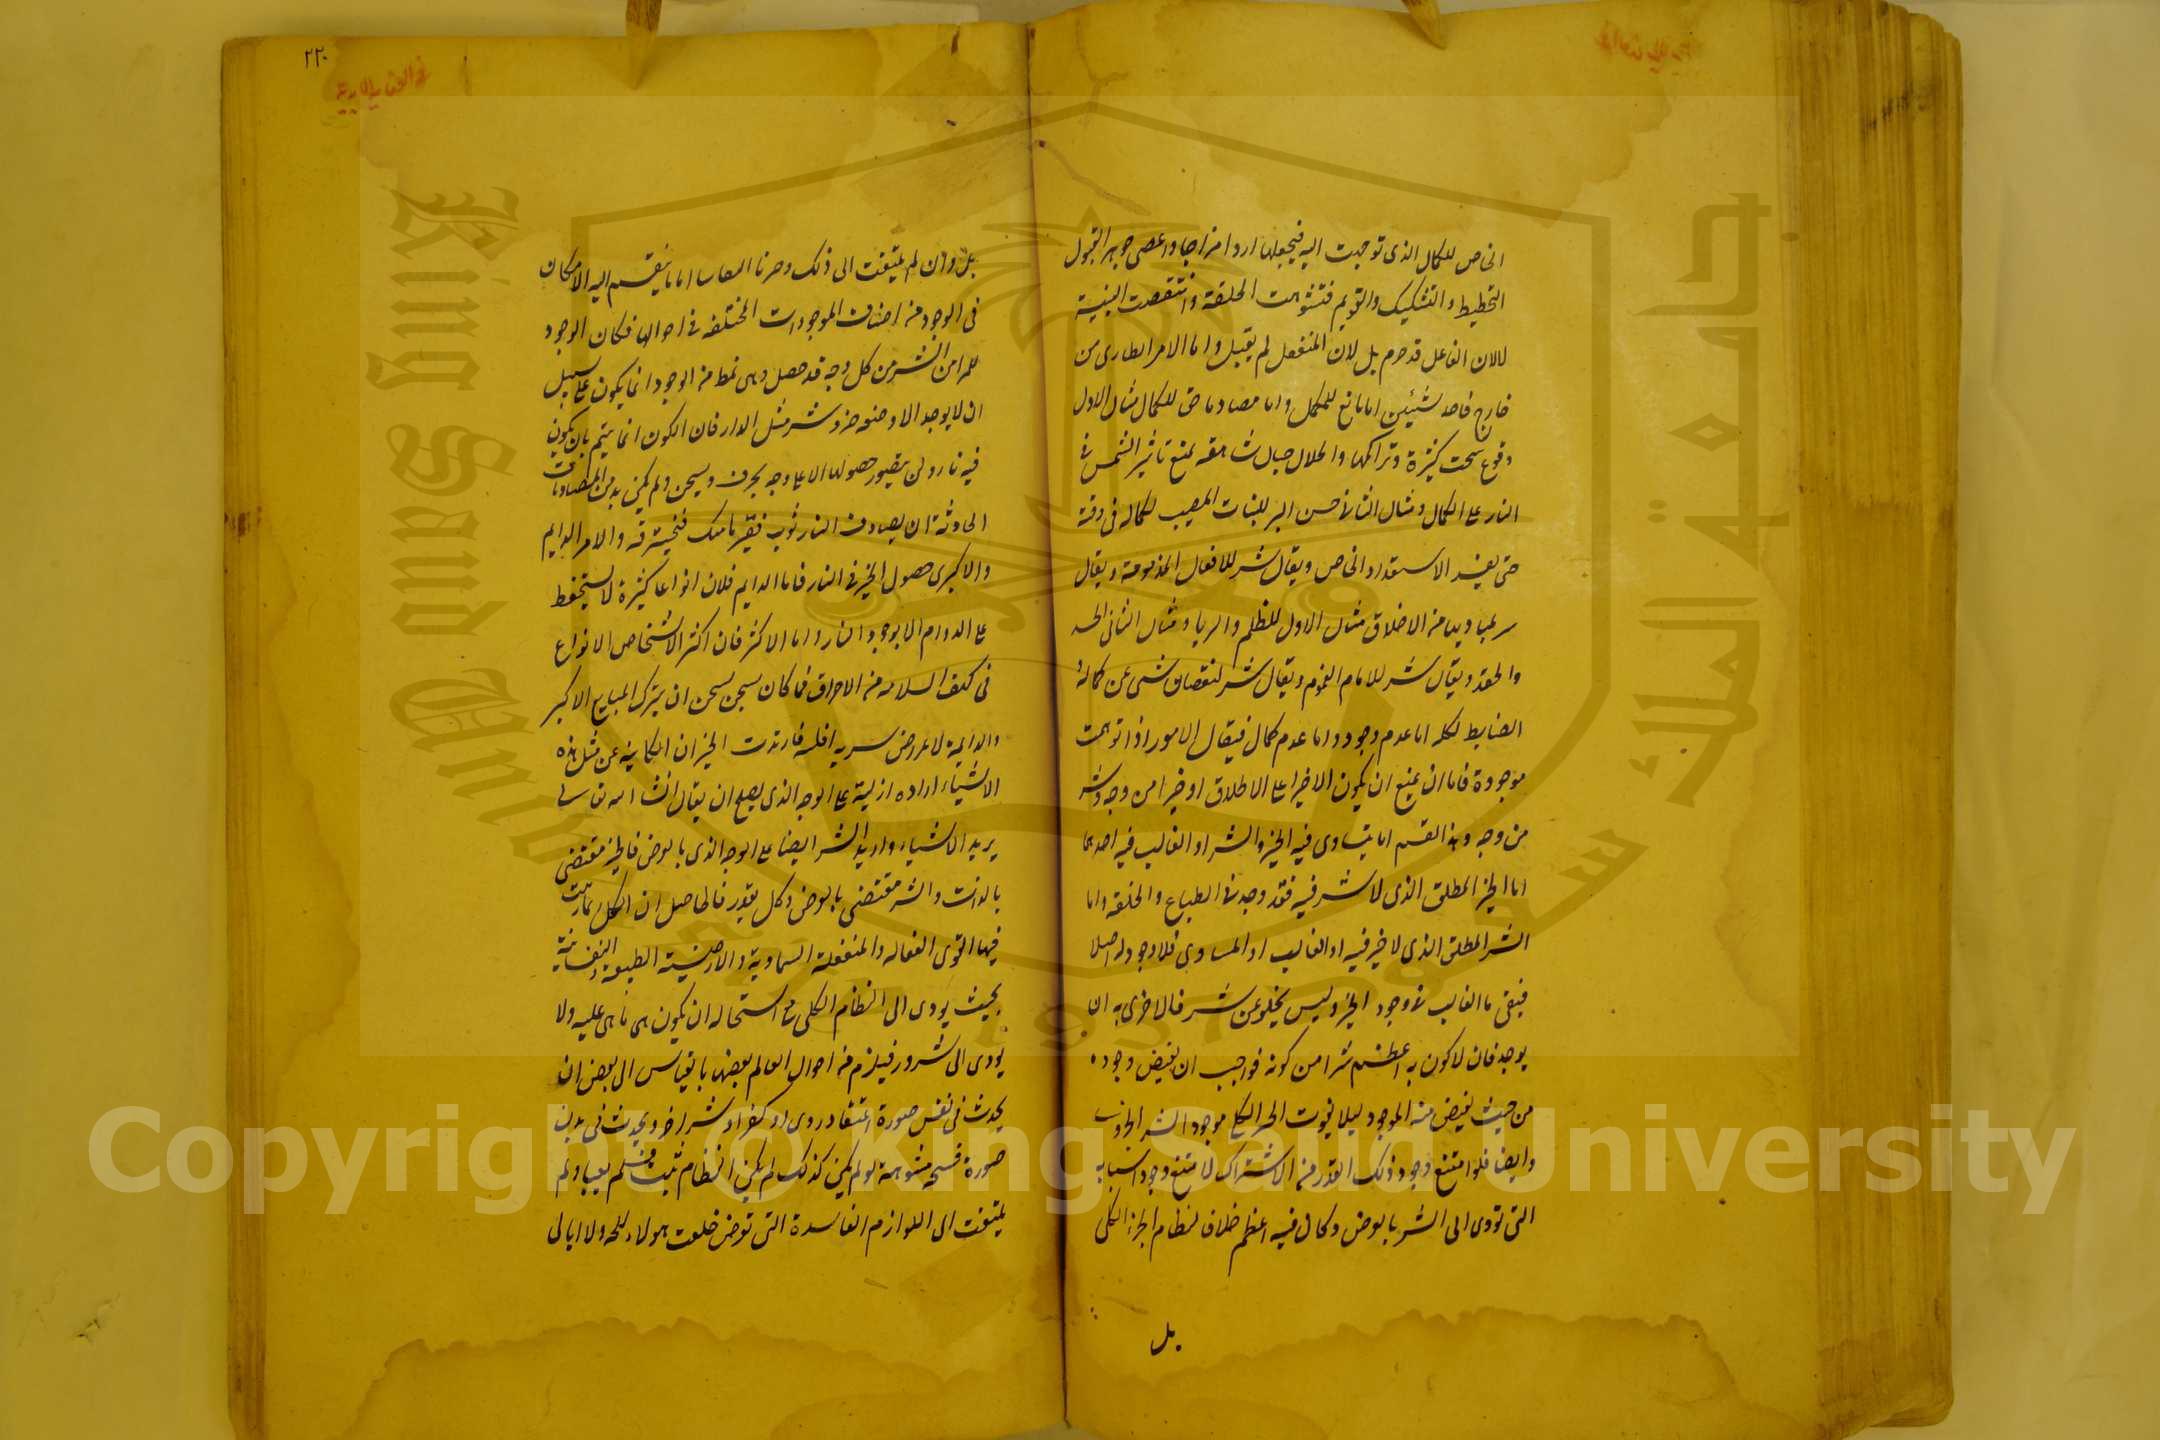 الخاص للكمال الذى توجهت اليه فيجعلها اردا مزاجا واعصى جوهر القبول
التخطيط والتشكيك والتقويم فتشوهت الخلقة وانتقصت البنية
لا لان الفاعل قد حرم بل لان المنفعل لم يقبل واما الامر الطارى من
خارج فاحد شيئين اما مانع للمكمل واما مصاد ماحق للكمال مثال الاول
وقوع سحب كثيرة وتراكمها واظلال جبال شاهقه يمنع تاثير الشمس فى
الثمار على الكمال ومثال الثانى حبس البرد للنبات المصيب لكماله فى وقته
حتى يفسد الاستعداد الخاص ويقال شر للافعال المذمومة ويقال
شر لمباديها من الاخلاق مثال الاول الظلم والريا ومثال الثانى الحسد
والحقد ويقال شر للالام والغموم ويقال شر لنقصان شى عن كماله و
الضابط لكله اما عدم وجود واما عدم كمال فيقال الامور اذا توهمت
موجودة فاما ان يمنع ان يكون الا خيرا على الاطلاق او خيرا من وجه وشر
من وجه وهذا القسم اما يتساوى فيه الخير والشر او الغالب فيه احدهما
اما الخير المطلق الذى لا شر فيه فقد وجد فى الطباع والخلقه واما
الشر المطلق الذى لا خير فيه او الغالب او المساوى فلا وجود له اصلا
فبقى ما الغالب فى وجوده الخير وليس يخلو عن شر فالاحرى به ان
يوجد فان لا كونه اعظم شرا من كونه فواجب ان يفيض وجوده
من حيث يفيض منه الوجود ليلا يفوت الخير الكلى لوجود الشر الجزوى
وايضا فلو امتنع وجود ذلك القدر من الاشتراك لامتنع وجود اسبابه
التى تودى الى الشر بالعرض وكان فيه اعظم خلاف لنظام الخير الكلى
بل
٢٢٠
بل وان لم يلتفت الى ذلك وصرنا اما ما ينقسم اليه الامكان
فى الوجود من اصناف الموجودات المختلفه فى احوالها فكان الوجود
المبرا من الشر من كل وجه قد حصل وبقى نمط من الوجود انما يكون على سبيل
ان لا يوجد الا ويتبعه ضرر وشر مثل النار فان الكون انما يتم بان يكون
فيه نار ولن يتصور حصولها الا على وجه يحرق ويسخن ولم يكن بد من المصادمات
الحادثة ان يصادف النار ثوب فقير ناسك فيحترقه والامر الدايم
والاكثرى حصول الخير فى النار فاما الدايم فلان انواعا كثيرة لا يستحفظ
على الدوام الا بوجود النار واما الاكثر فان اكثر الاشخاص الانواع
فى كنف السلامه من الاحراق فما كان يحسن ان يترك المنافع الاكثر
والدايمة لاعراض شريه اقليه فاريدت الخيرات الكاينه عن مثل هذه
الاشياء اراده ازلية على الوجه الذى يصلح ان يقال ان الله تعالى
يريد الاشياء واريد الشر ايضا على الوجه الذى بالعرض فالخير مقتضى
بالذات والشر مقتضى بالعرض وكل بقدر فالحاصل ان الكل انما رتبت
فيها القوى الفعاله والمنفعلة السماوية والارضية الطبيعه والنفسانية
بحيث يودى الى النظام الكلى مع استحاله ان يكون هى ما هى عليه ولا
يودى الى شرور فيلزم من احوال العالم بعضها بالقياس الى بعض ان
يحدث فى نفس صورة اعتقاد ردى او كفر او شر اخر ويحدث فى بدن
صورة قبيحه مشوهة لو لم يكن كذلك لم يكن النظام يثبت فلم يعبا ولم
يلتفت الى اللوازم الفاسدة التى تعرض خلقت هولاء للجنه ولا ابالى